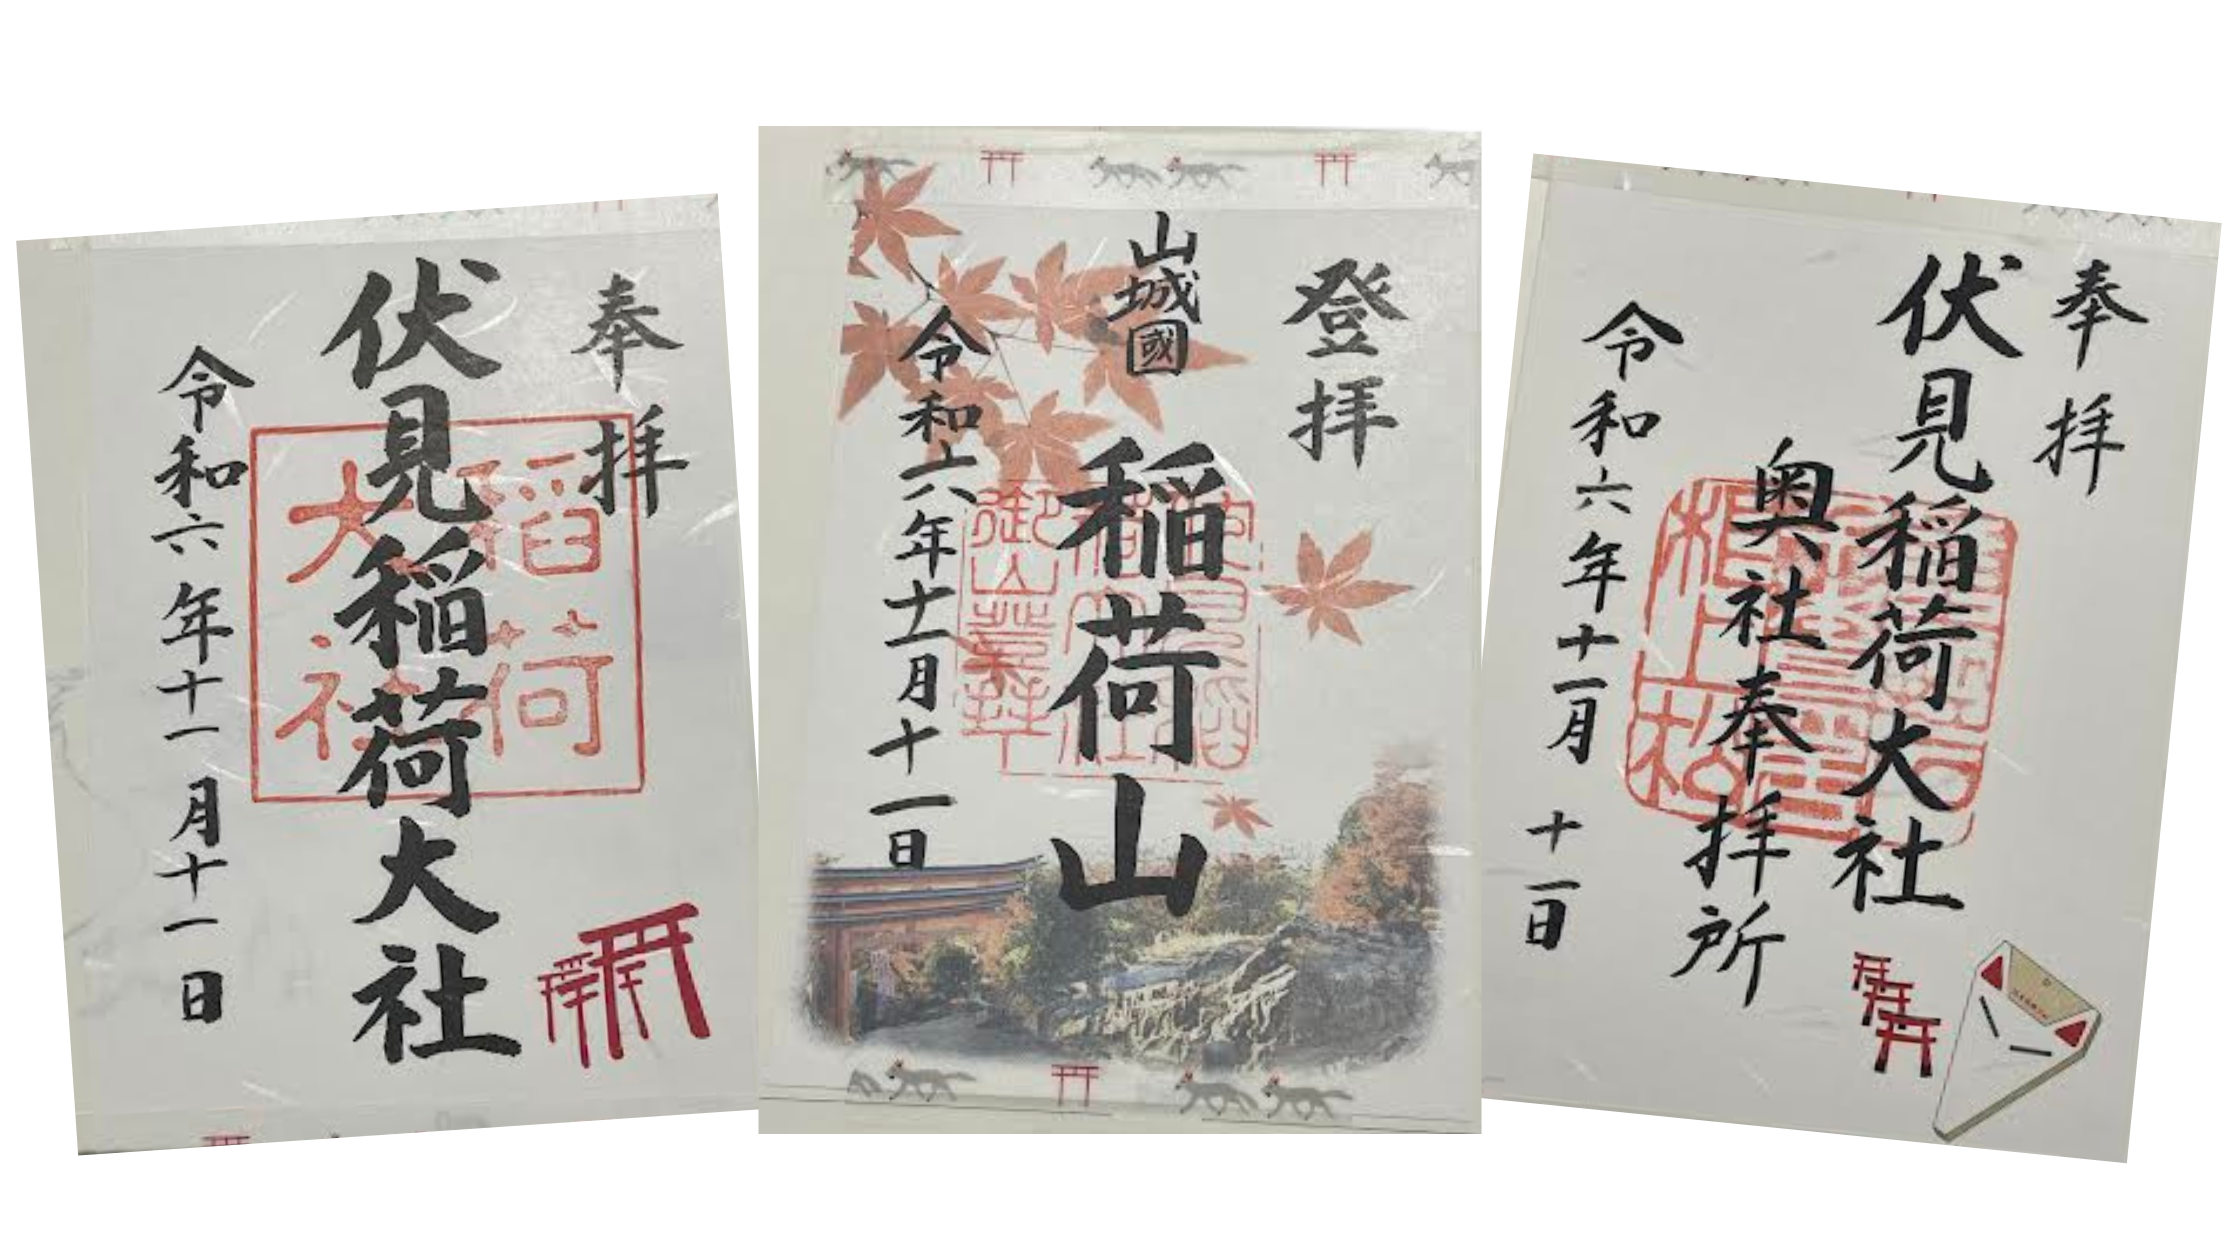 奉拝
伏見稲荷大社
稲荷
大社
令和六年十一月十一日
登拝
山城國
稲荷山
令和六年十一月十一日
奉拝
伏見稲荷大社
奥社奉拝所
令和六年十一月十一日